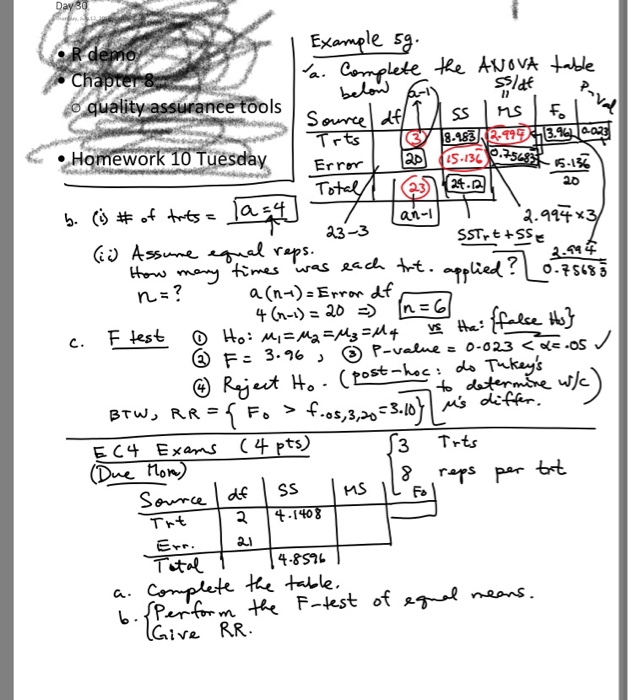 Day 30
• R demo
• Chapter 8
○ quality assurance tools
• Homework 10 Tuesday
Example 5g.
a. Complete the ANOVA table
below
a-1
SS/df
Source | df | SS | MS | F₀ | P-Val
Trts | 3 | 8.983 | 2.994 | 3.96 | 0.023
Error | 20 | 15.136 | 0.7568
Total | 23 | 24.12
15.136
20
an-1
23-3
SSTrt + SSE
2.994 × 3
2.994
0.7568
b. (i) # of trts = a = 4
(ii) Assume equal reps.
How many times was each trt. applied?
n = ?
a(n-1) = Error df
4(n-1) = 20 ⇒ n = 6
c. F test
① H₀: μ₁=μ₂=μ₃=μ₄ vs Ha: {false H₀}
② F = 3.96, ③ P-value = 0.023 < α = .05 ✓
④ Reject H₀. (post-hoc: do Tukey's
to determine w/c
μ's differ.)
BTW, RR = { F₀ > f.05,3,20 = 3.10}
EC4 Exams (4 pts)
(Due Mon)
{3 Trts
8 reps per trt
Source | df | SS | MS | F₀
Trt | 2 | 4.1408
Err. | 21
Total | 4.8596
a. Complete the table.
b. {Perform the F-test of equal means.
Give RR.